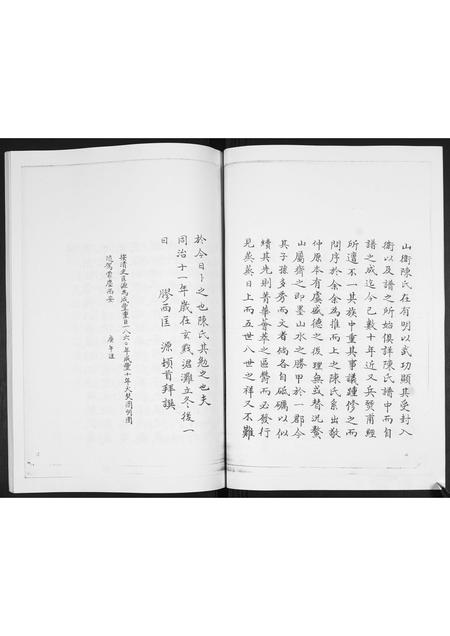 山衛陳氏在有明以武功顯其受封入
衛以及譜之所始俱詳陳氏譜中而自
譜之成迄今已數十年近又兵燹甫經
所遺不一其族中重其事議踵修之而
問序於余余為推而上之陳氏系出敬
仲原本有虞盛德之後理無或替況鰲
山屬齋之即墨山水之勝甲於一郡今
其子孫多秀而文者倘各自砥礪以似
續其先則菁華薈萃之區臀而必發行
見蒸蒸日上而五世八世之祥又不難
於今日卜之也陳氏其勉之也夫
同治十一年歲在玄黓涒灘立冬後一
日
膠西匡 源頓首拜譔
按清史匡源為咸豐重臣一八六〇年咸豐十年火焚圓明園
隨駕